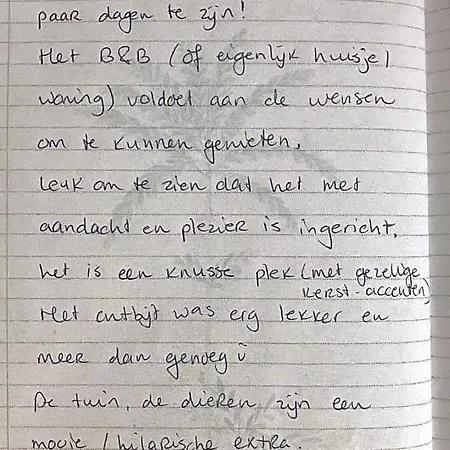 paar dagen te zijn!
Het B&B (of eigenlijk huisje/
woning) voldoet aan de wensen
om te kunnen genieten,
leuk om te zien dat het met
aandacht en plezier is ingericht.
het is een knusse plek (met gezellige
kerst-accenten)
Het ontbijt was erg lekker en
meer dan genoeg ü
De tuin, de dieren zijn een
mooie / hilarische extra.